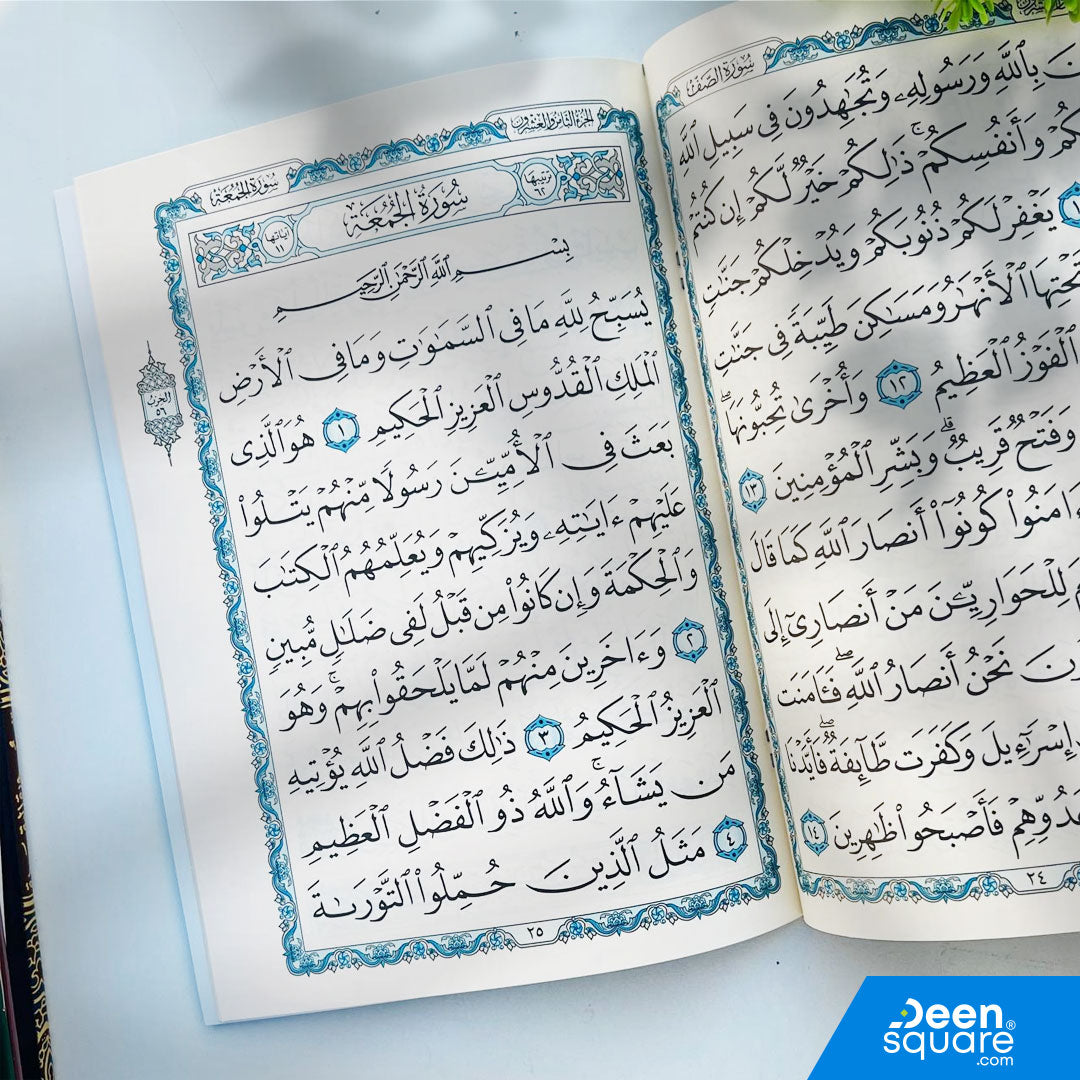 سُورَةُ الصَّفِّ
بِٱللَّهِ وَرَسُولِهِۦ وَتُجَٰهِدُونَ فِى سَبِيلِ ٱللَّهِ
وَأَنفُسِكُمْ ۚ ذَٰلِكُمْ خَيْرٌ لَّكُمْ إِن كُنتُمْ
يَغْفِرْ لَكُمْ ذُنُوبَكُمْ وَيُدْخِلْكُمْ جَنَّٰتٍ
ٱلْأَنْهَٰرُ وَمَسَٰكِنَ طَيِّبَةً فِى جَنَّٰتِ
ٱلْفَوْزُ ٱلْعَظِيمُ ١٢ وَأُخْرَىٰ تُحِبُّونَهَا ۖ
وَفَتْحٌ قَرِيبٌ ۗ وَبَشِّرِ ٱلْمُؤْمِنِينَ ١٣
ءَامَنُوا۟ كُونُوٓا۟ أَنصَارَ ٱللَّهِ كَمَا قَالَ
لِلْحَوَارِيِّـۧنَ مَنْ أَنصَارِىٓ إِلَى
نَحْنُ أَنصَارُ ٱللَّهِ ۖ فَـَٔامَنَت
إِسْرَٰٓءِيلَ وَكَفَرَت طَّآئِفَةٌ ۖ فَأَيَّدْنَا
فَأَصْبَحُوا۟ ظَٰهِرِينَ ١٤
٢٤
الجُزْءُ الثَّامِنُ وَالعِشْرُونَ
سُورَةُ الجُمُعَةِ
ترتيبها ٦٢
سُورَةُ الجُمُعَةِ
آياتها ١١
بِسْمِ ٱللَّهِ ٱلرَّحْمَٰنِ ٱلرَّحِيمِ
يُسَبِّحُ لِلَّهِ مَا فِى ٱلسَّمَٰوَٰتِ وَمَا فِى ٱلْأَرْضِ
ٱلْمَلِكِ ٱلْقُدُّوسِ ٱلْعَزِيزِ ٱلْحَكِيمِ ١ هُوَ ٱلَّذِى
بَعَثَ فِى ٱلْأُمِّيِّـۧنَ رَسُولًا مِّنْهُمْ يَتْلُوا۟
عَلَيْهِمْ ءَايَٰتِهِۦ وَيُزَكِّيهِمْ وَيُعَلِّمُهُمُ ٱلْكِتَٰبَ
وَٱلْحِكْمَةَ وَإِن كَانُوا۟ مِن قَبْلُ لَفِى ضَلَٰلٍ مُّبِينٍ
٢ وَءَاخَرِينَ مِنْهُمْ لَمَّا يَلْحَقُوا۟ بِهِمْ ۚ وَهُوَ
ٱلْعَزِيزُ ٱلْحَكِيمُ ٣ ذَٰلِكَ فَضْلُ ٱللَّهِ يُؤْتِيهِ
مَن يَشَآءُ ۚ وَٱللَّهُ ذُو ٱلْفَضْلِ ٱلْعَظِيمِ
٤ مَثَلُ ٱلَّذِينَ حُمِّلُوا۟ ٱلتَّوْرَىٰةَ
الحزب
٥٦
٢٥
Deen®
square
.com